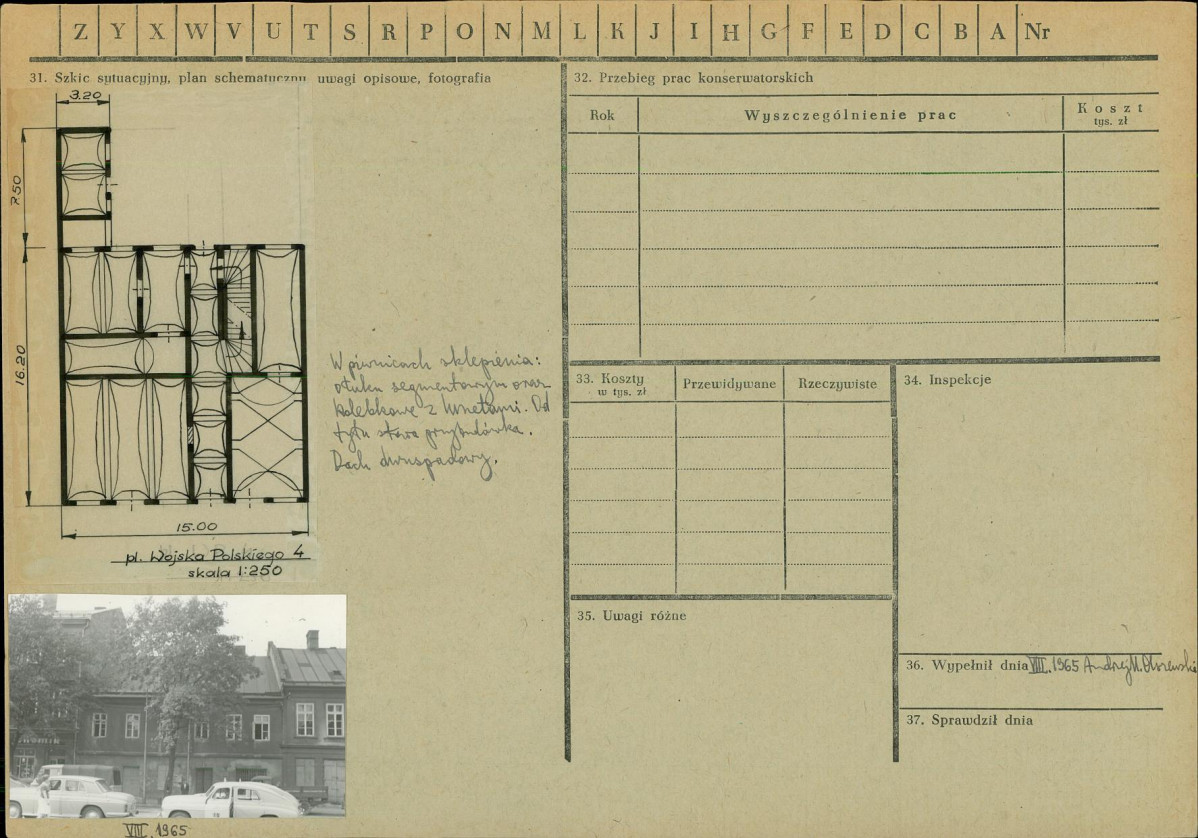 Z Y X W V U T S R P O N M L K J I H G F E D C B A Nr
31. Szkic sytuacyjny, plan schematyczny uwagi opisowe, fotografia
3.20
7.50
16.20
15.00
pl. Wojska Polskiego 4
skala 1:250
W piwnicach sklepienia:
o łuku segmentowym oraz
kolebkowe z lunetami. Od
tyłu stara przybudówka.
Dach dwuspadowy.
VIII. 1965
32. Przebieg prac konserwatorskich
Rok
Wyszczególnienie prac
Koszt
tys. zł
33. Koszty
w tys. zł
Przewidywane
Rzeczywiste
34. Inspekcje
35. Uwagi różne
36. Wypełnił dnia VIII. 1965 Andrzej K. Olszewski
37. Sprawdził dnia